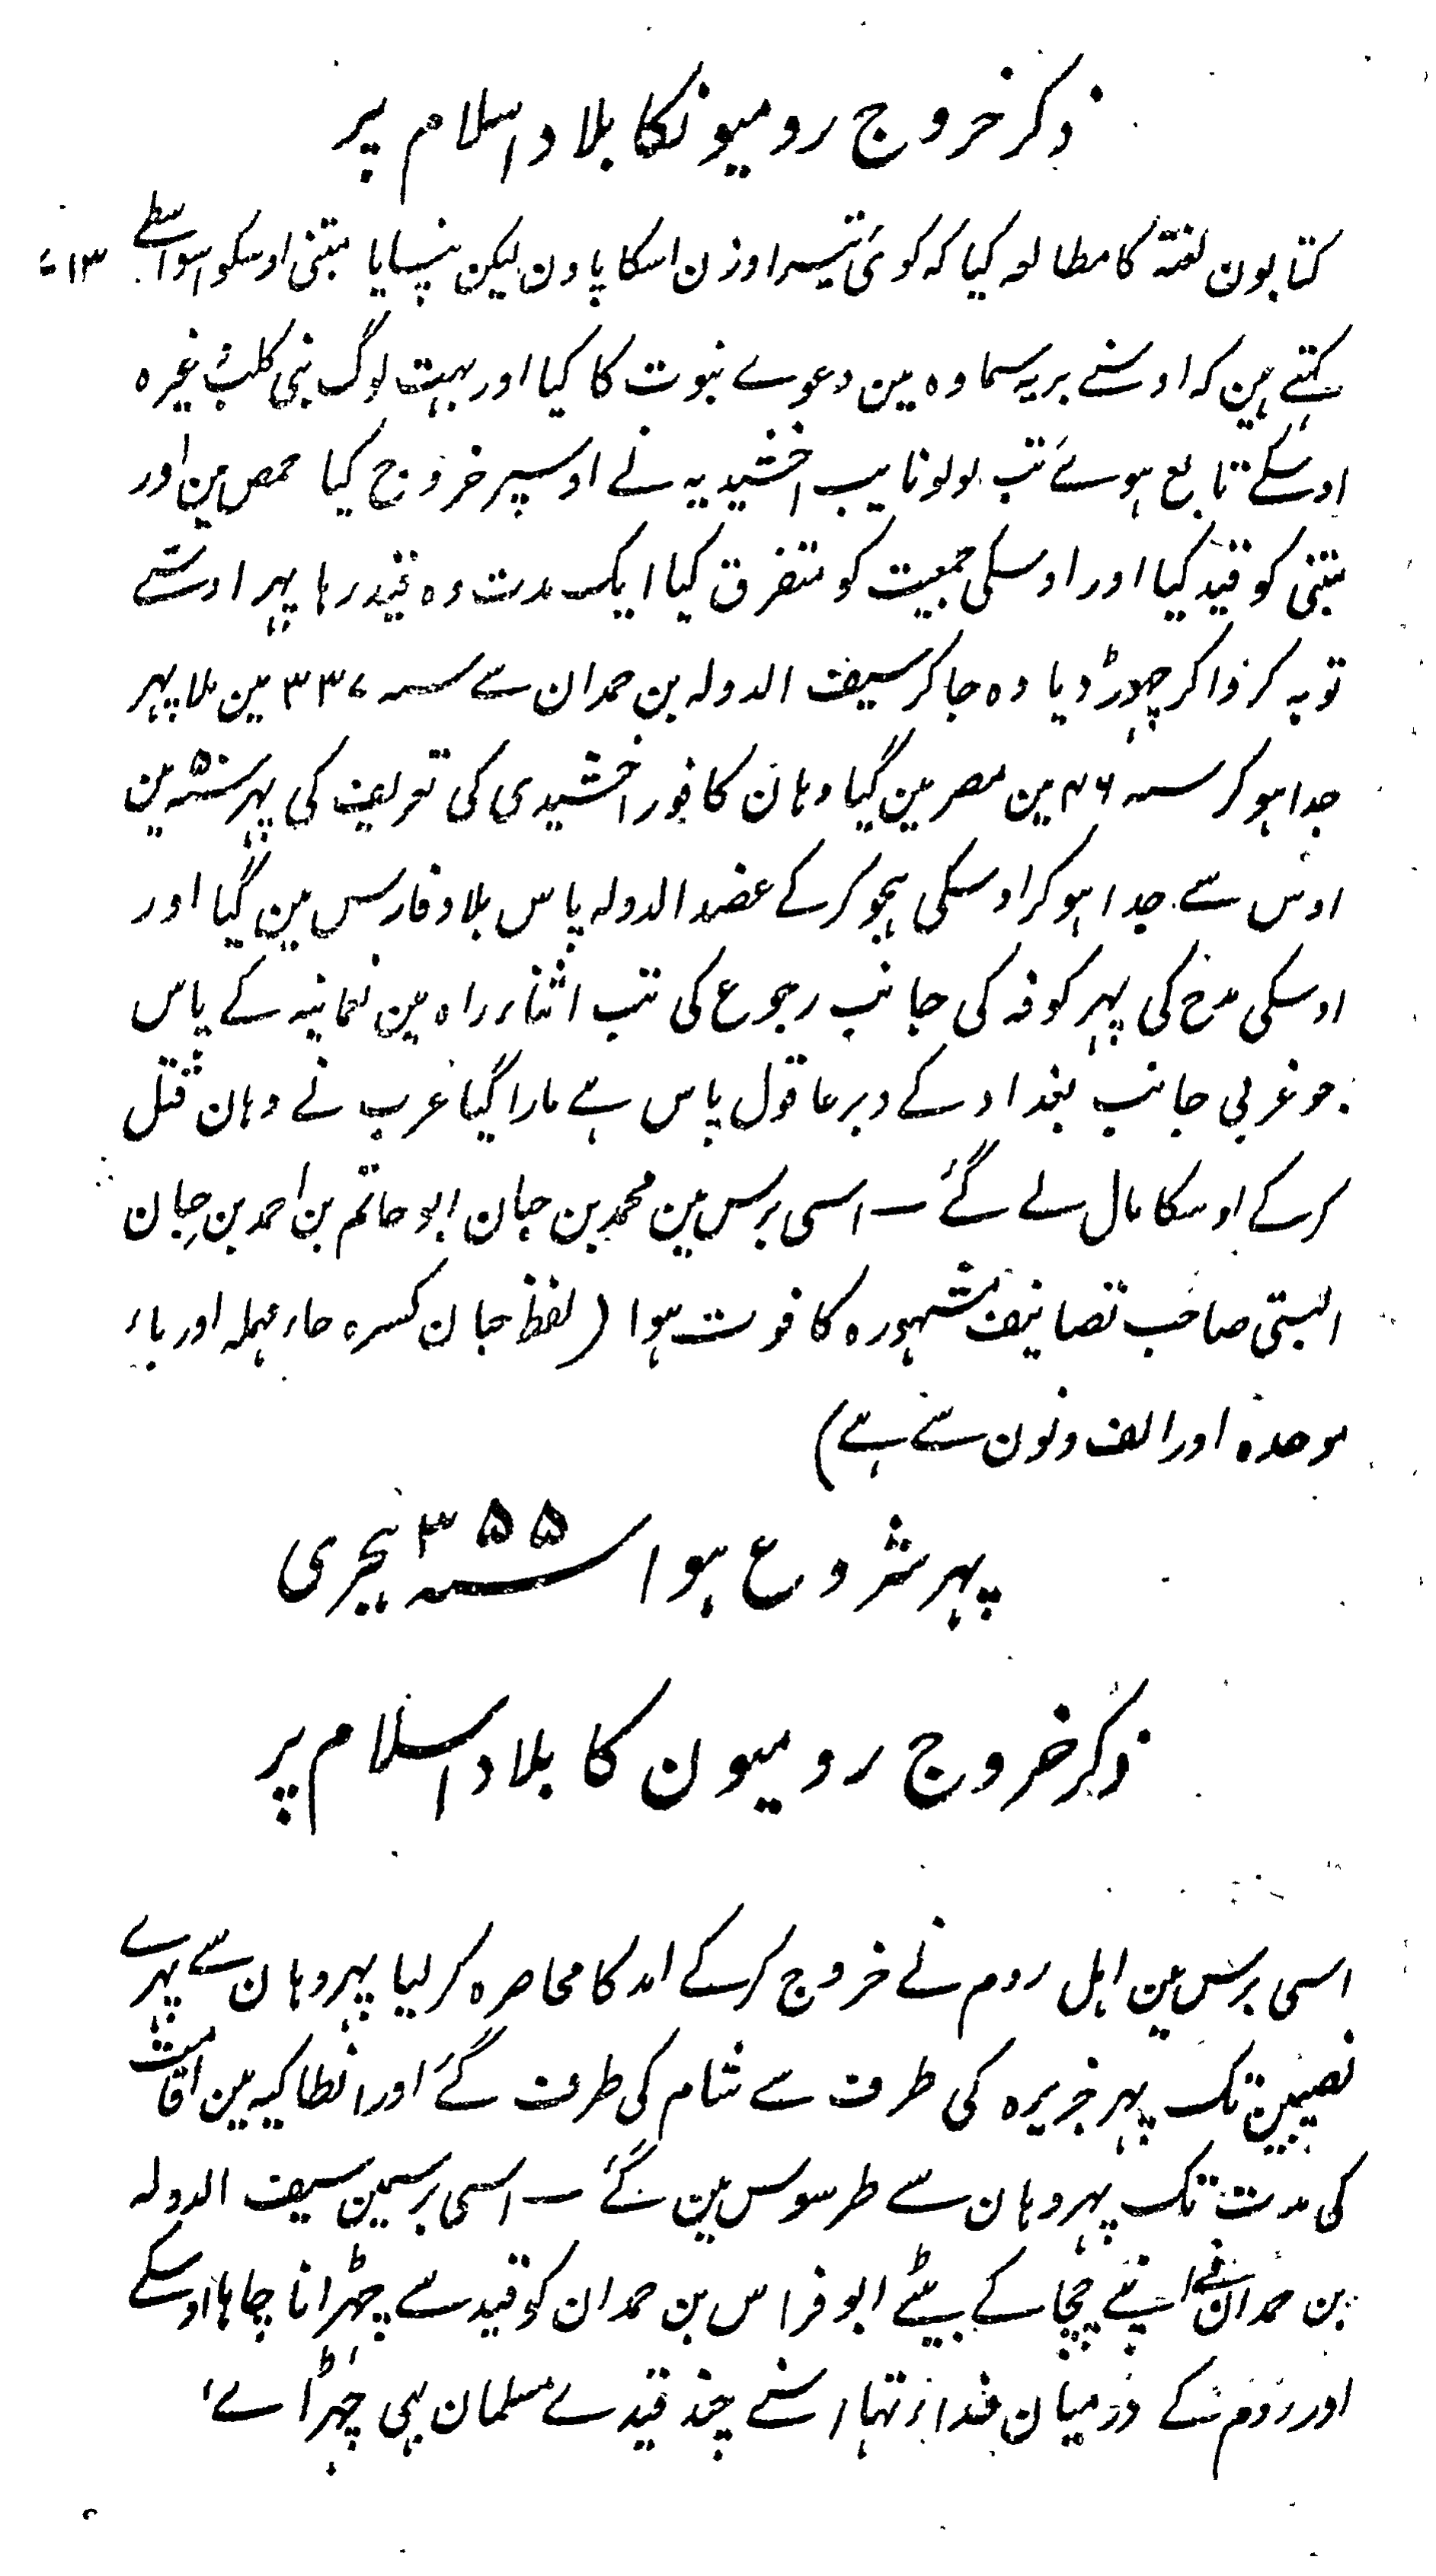 ذکر خروج رومیونکا بلاد اسلام پر
کتابون لغتہ کا مطالعہ کیا کہ کوئی تیسرا وزن اسکا پاون لیکن نپایا متنبی اوسکو اسواسطے ١٣
کہتے ہین کہ اوسنے بریہ سماوہ مین دعوے نبوت کا کیا اور بہت لوگ بنی کلب وغیرہ
اوسکے تابع ہوئے تب لولو نایب اخشیدیہ نے اوسپر خروج کیا حمص مین اور
متنبی کو قید کیا اور اوسکی جمعیت کو متفرق کیا ایک مدت وہ قید رہا پہر اوسے
توبہ کرواکر چہوڑ دیا وہ جاکر سیف الدولہ بن حمدان سے سنہ ٣٣٧ مین ملا پہر
جدا ہوکر سنہ ۴۶ مین مصر مین گیا وہان کافور اخشیدی کی تعریف کی پہر سنہ ۵۰ مین
اوس سے جدا ہوکر اوسکی ہجو کرکے عضد الدولہ پاس بلاد فارس مین گیا اور
اوسکی مدح کی پہر کوفہ کی جانب رجوع کی تب اثناء راہ مین نعمانیہ کے پاس
جو غربی جانب بغداد کے دیر عاقول پاس ہے مارا گیا عرب نے وہان قتل
کرکے اوسکا مال لے گئے – اسی برس مین محمد بن حبان ابو حاتم بن احمد بن حِبان
البستی صاحب تصانیف مشہورہ کا فوت ہوا (لفظ حبان کسرہ حاء مہملہ اور باء
موحدہ اور الف و نون سے ہے)
پہر شروع ہوا سنہ ٣۵۵ ہجری
ذکر خروج رومیون کا بلاد اسلام پر
اسی برس مین اہل روم نے خروج کرکے امد کا محاصرہ کر لیا پہر وہان سے پہرے
نصیبین تک پہر جزیرہ کی طرف سے شام کی طرف گئے اور انطاکیہ مین اقامت
کی مدت تک پہر وہان سے طرسوس مین گئے – اسی برسمین سیف الدولہ
بن حمدان نے اپنے چچا کے بیٹے ابو فراس بن حمدان کو قید سے چہڑانا چاہا اوسکے
اور روم کے درمیان فداء تہا اسنے چند قیدے مسلمان بہی چہڑائے